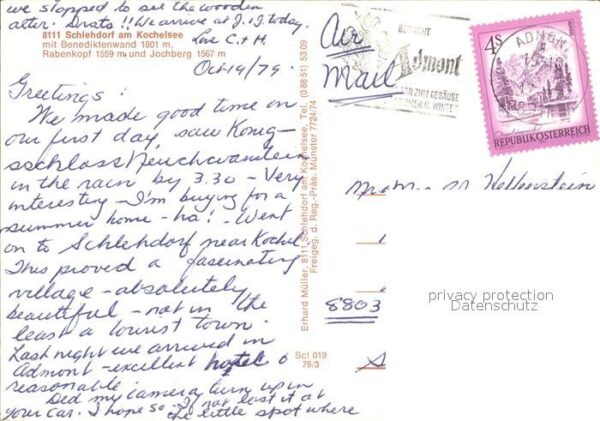 we stopped to see the wooden
altar. Drats!! We arrive at J.I. today.
Love C + H.
8111 Schlehdorf am Kochelsee
mit Benediktenwand 1801 m,
Rabenkopf 1559 m und Jochberg 1567 m
Oct 14/79.
Greetings :
We made good time on
our first day, saw König-
sschloss Neuchwanstein
in the rain by 3.30 - Very
interesting - I'm buying for a
summer home - ha! - Went
on to Schlehdorf near Kochel.
This proved a fascinating
village - absolutely
beautiful - not in the
least a tourist town.
Last night we arrived in
Admont - excellent hotel &
reasonable
Did my camera turn up in
your car. I hope so - I not lost it at
the little spot where
Erhard Müller, 8111 Schlehdorf am Kochelsee, Tel. (0 88 51) 53 09
Freigeg. d. Reg.-Präs. Münster 7724/74
Scl 019
76/3
Air
Mail
BESUCHT
Admont
TOR ZUM GESÄUSE
SOMMER U. WINTER
ADMONT
4S
REPUBLIK ÖSTERREICH
Hellenstein
8803
privacy protection
Datenschutz